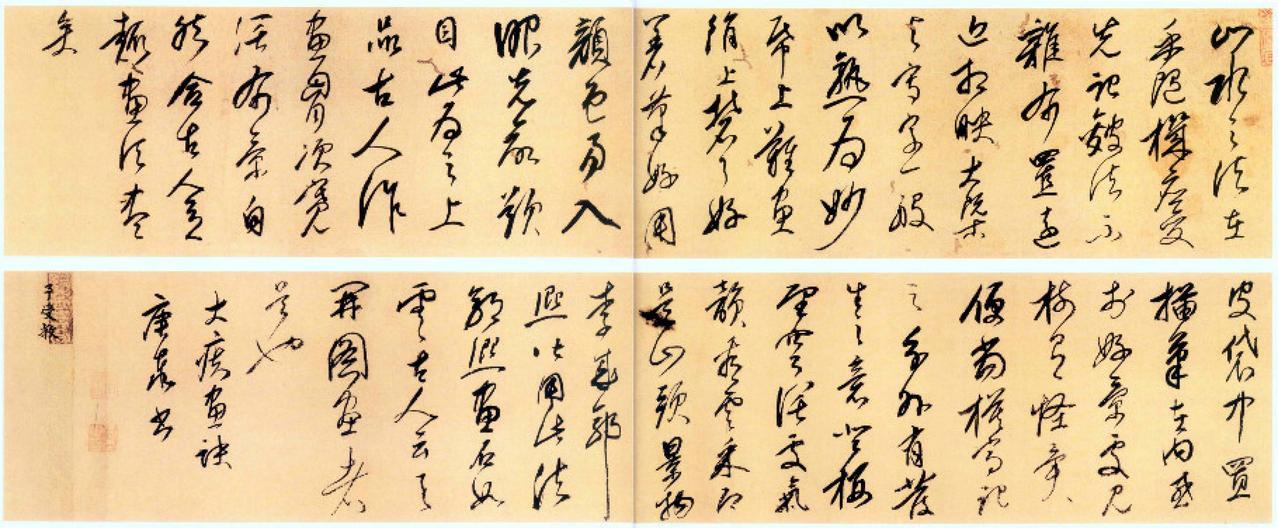 山水之法在
乎随機應變
先記皴法不
雜布置遠
近相映大槩
与寫字一般
以熟为妙
帋上難畫
絹上礬了好
著筆好用
顏色易入
眼先命題
目此为之上
品古人作
畫胸次寬
活布景自
然合古人意
趣畫法盡
矣
皮袋中置
描筆在内或
於好景處見
樹有怪異
便當模寫記
之分外有發
生之意登樓
望空濶處氣
韻看雲采即
是山頭景物
李成郭
熙皆用此法
郭熙畫石如
雲古人云天
開圖畫者
是也
大痴畫訣